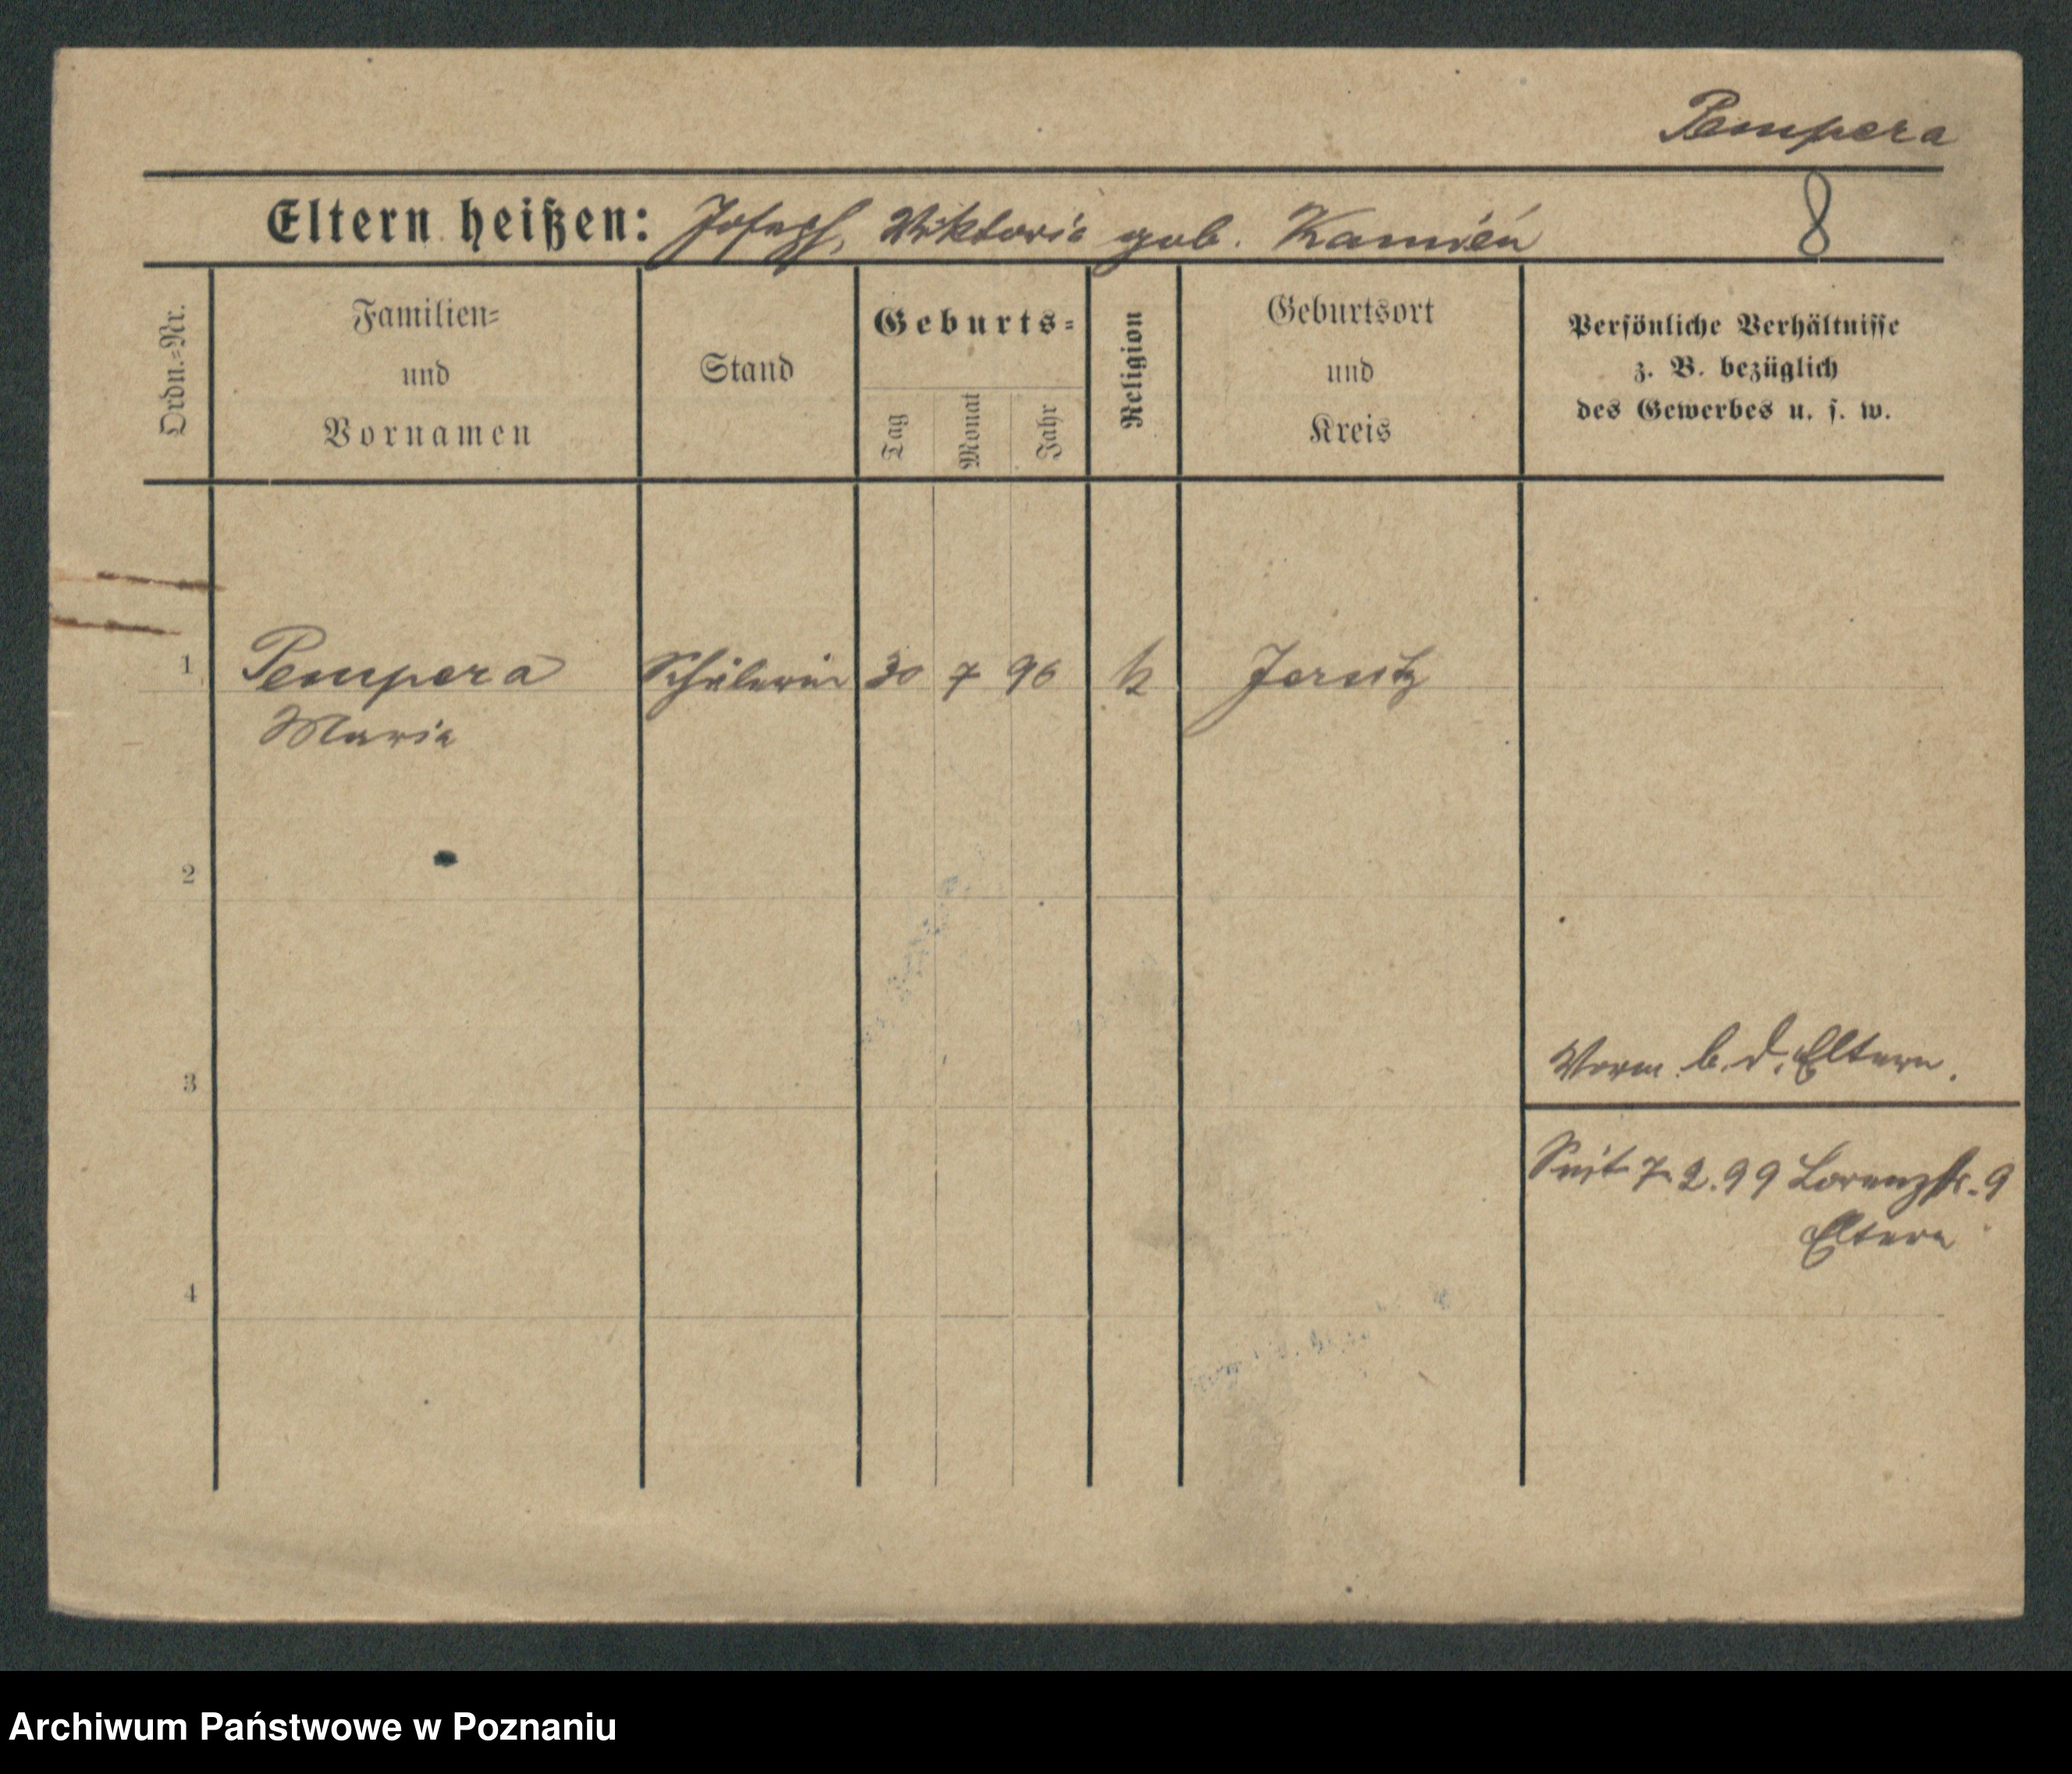 Pempera
Eltern heißen: Joseph, Viktoria geb. Kamień 8
Ordn.=Nr.
Familien=
und
Vornamen
Stand
Geburts=
Tag
Monat
Jahr
Religion
Geburtsort
und
Kreis
Persönliche Verhältnisse
z. B. bezüglich
des Gewerbes u. s. w.
1 Pempera Schülerin 30 7 96 k Jersitz
Maria
2
3
Vorm. b. d. Eltern.
Seit 7.2.99 Lorenzstr. 9
Eltern
4
Archiwum Państwowe w Poznaniu